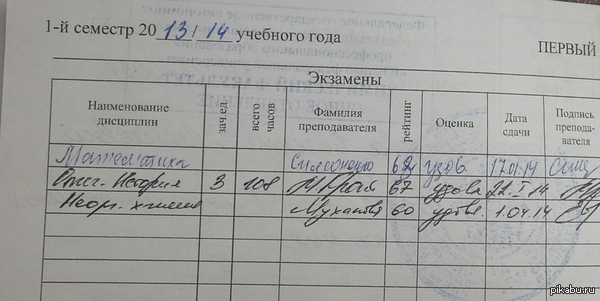 1-й семестр 20 13/14 учебного года
ПЕРВЫЙ
Экзамены
Наименование дисциплин зач.ед. всего часов Фамилия преподавателя рейтинг Оценка Дата сдачи Подпись препода-вателя
Математика 62 удов. 17.01.14
История 3 108 67 удовл 22.I.14
Неорг. химия 60 удовл 1.04.14
pikabu.ru